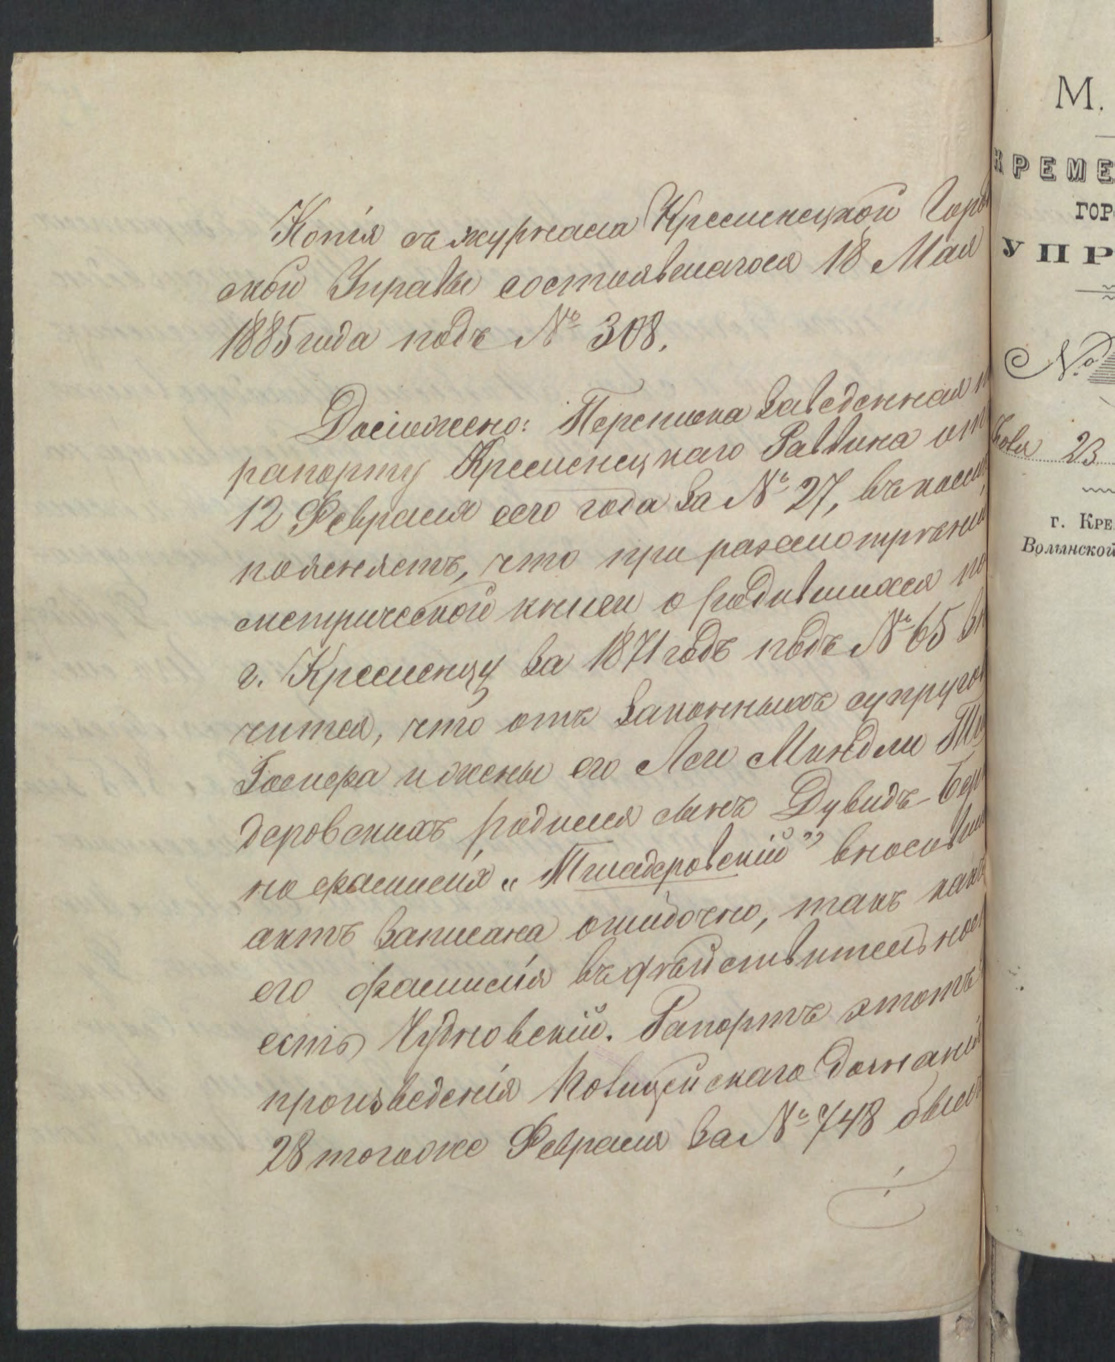 Копія съ журнала Кременецкой Город
ской Управы состоявшагося 18 Мая
1885 года подъ № 308.
Доложено: Переписка заведенная п
рапорту Кременецкаго Раввина от
12 Февраля сего года за № 27, въ коем
поясняетъ, что при разсмотрѣніи
метрической книги о родившихся по
г. Кременцу за 1871 годъ подъ № 65 зн
чится, что отъ законныхъ супругов
Іосифа и жены его Леи Миндли
деровскихъ родился сынъ Дувидъ-Бер
но фамилія „Тиладеровскій” въ
актъ записана ошибочно, такъ какъ
его фамилія въ дѣйствительнос
есть Чудновскій. Рапортъ этотъ
произведенія Полицейскаго дознані
28 того же Февраля за № 748 былъ
М.
КРЕМЕ
ГОР
УПР
№
23
г. Кре
Волынской